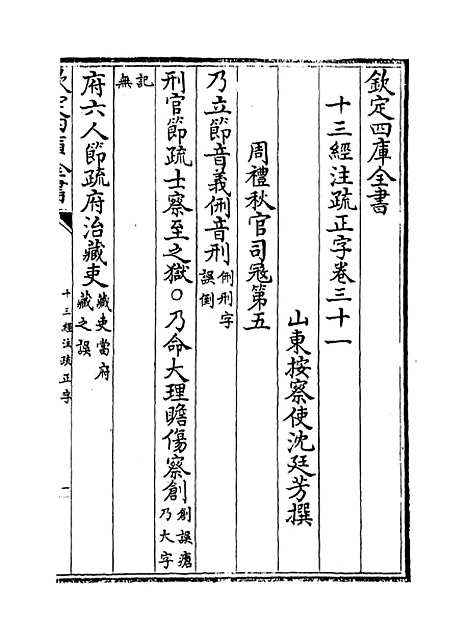 欽定四庫全書
十三經注疏正字卷三十一
山東按察使沈廷芳撰
周禮秋官司寇第五
乃立節音義侀音刑侀刑字誤倒
刑官節疏士察至之獄○乃命大理瞻傷察創創誤瘡乃大字
記無
府六人節疏府治藏吏藏吏當府藏之誤
欽定四庫全書
十三經注疏正字
一